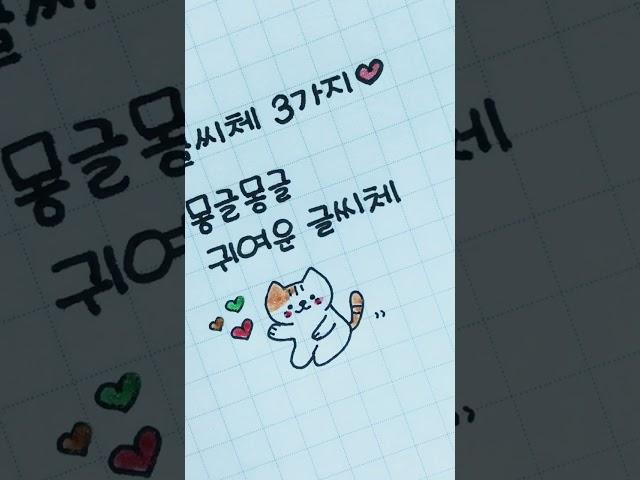 글씨체 3가지
몽글몽글
귀여운 글씨체